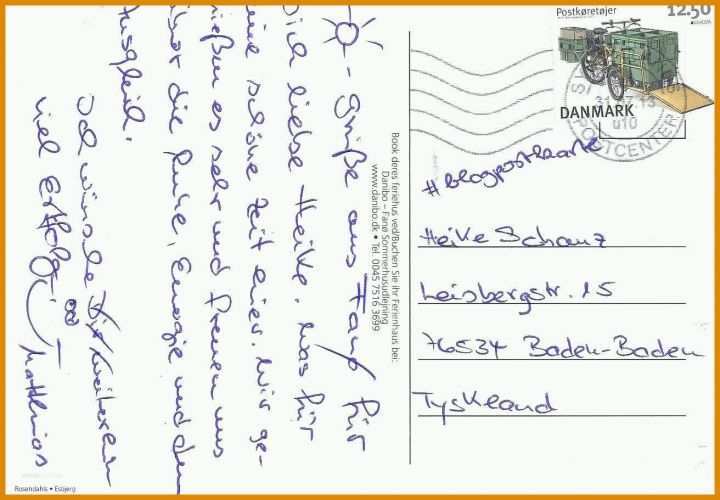 -Grüße aus Fanø für
Dich liebe Heike. Was für
eine schöne Zeit hier. Wir ge-
nießen es sehr und freuen uns
über die Ruhe, Energie und den
Ausgleich.
Ich wünsche Dir weiterhin
viel Erfolg
Matthias
Book deres feriehus ved/Buchen Sie ihr Ferienhaus bei:
Danibo – Fanø Sommerhusudlejning
www.danibo.dk • Tel. 0045 7516 3699
Postkøretøjer 12.50
DANMARK
u10
POSTCENTER
#blogpostkarte
Heike Schanz
Leisbergstr. 15
76534 Baden-Baden
Tyskland
Rosendahls • Esbjerg